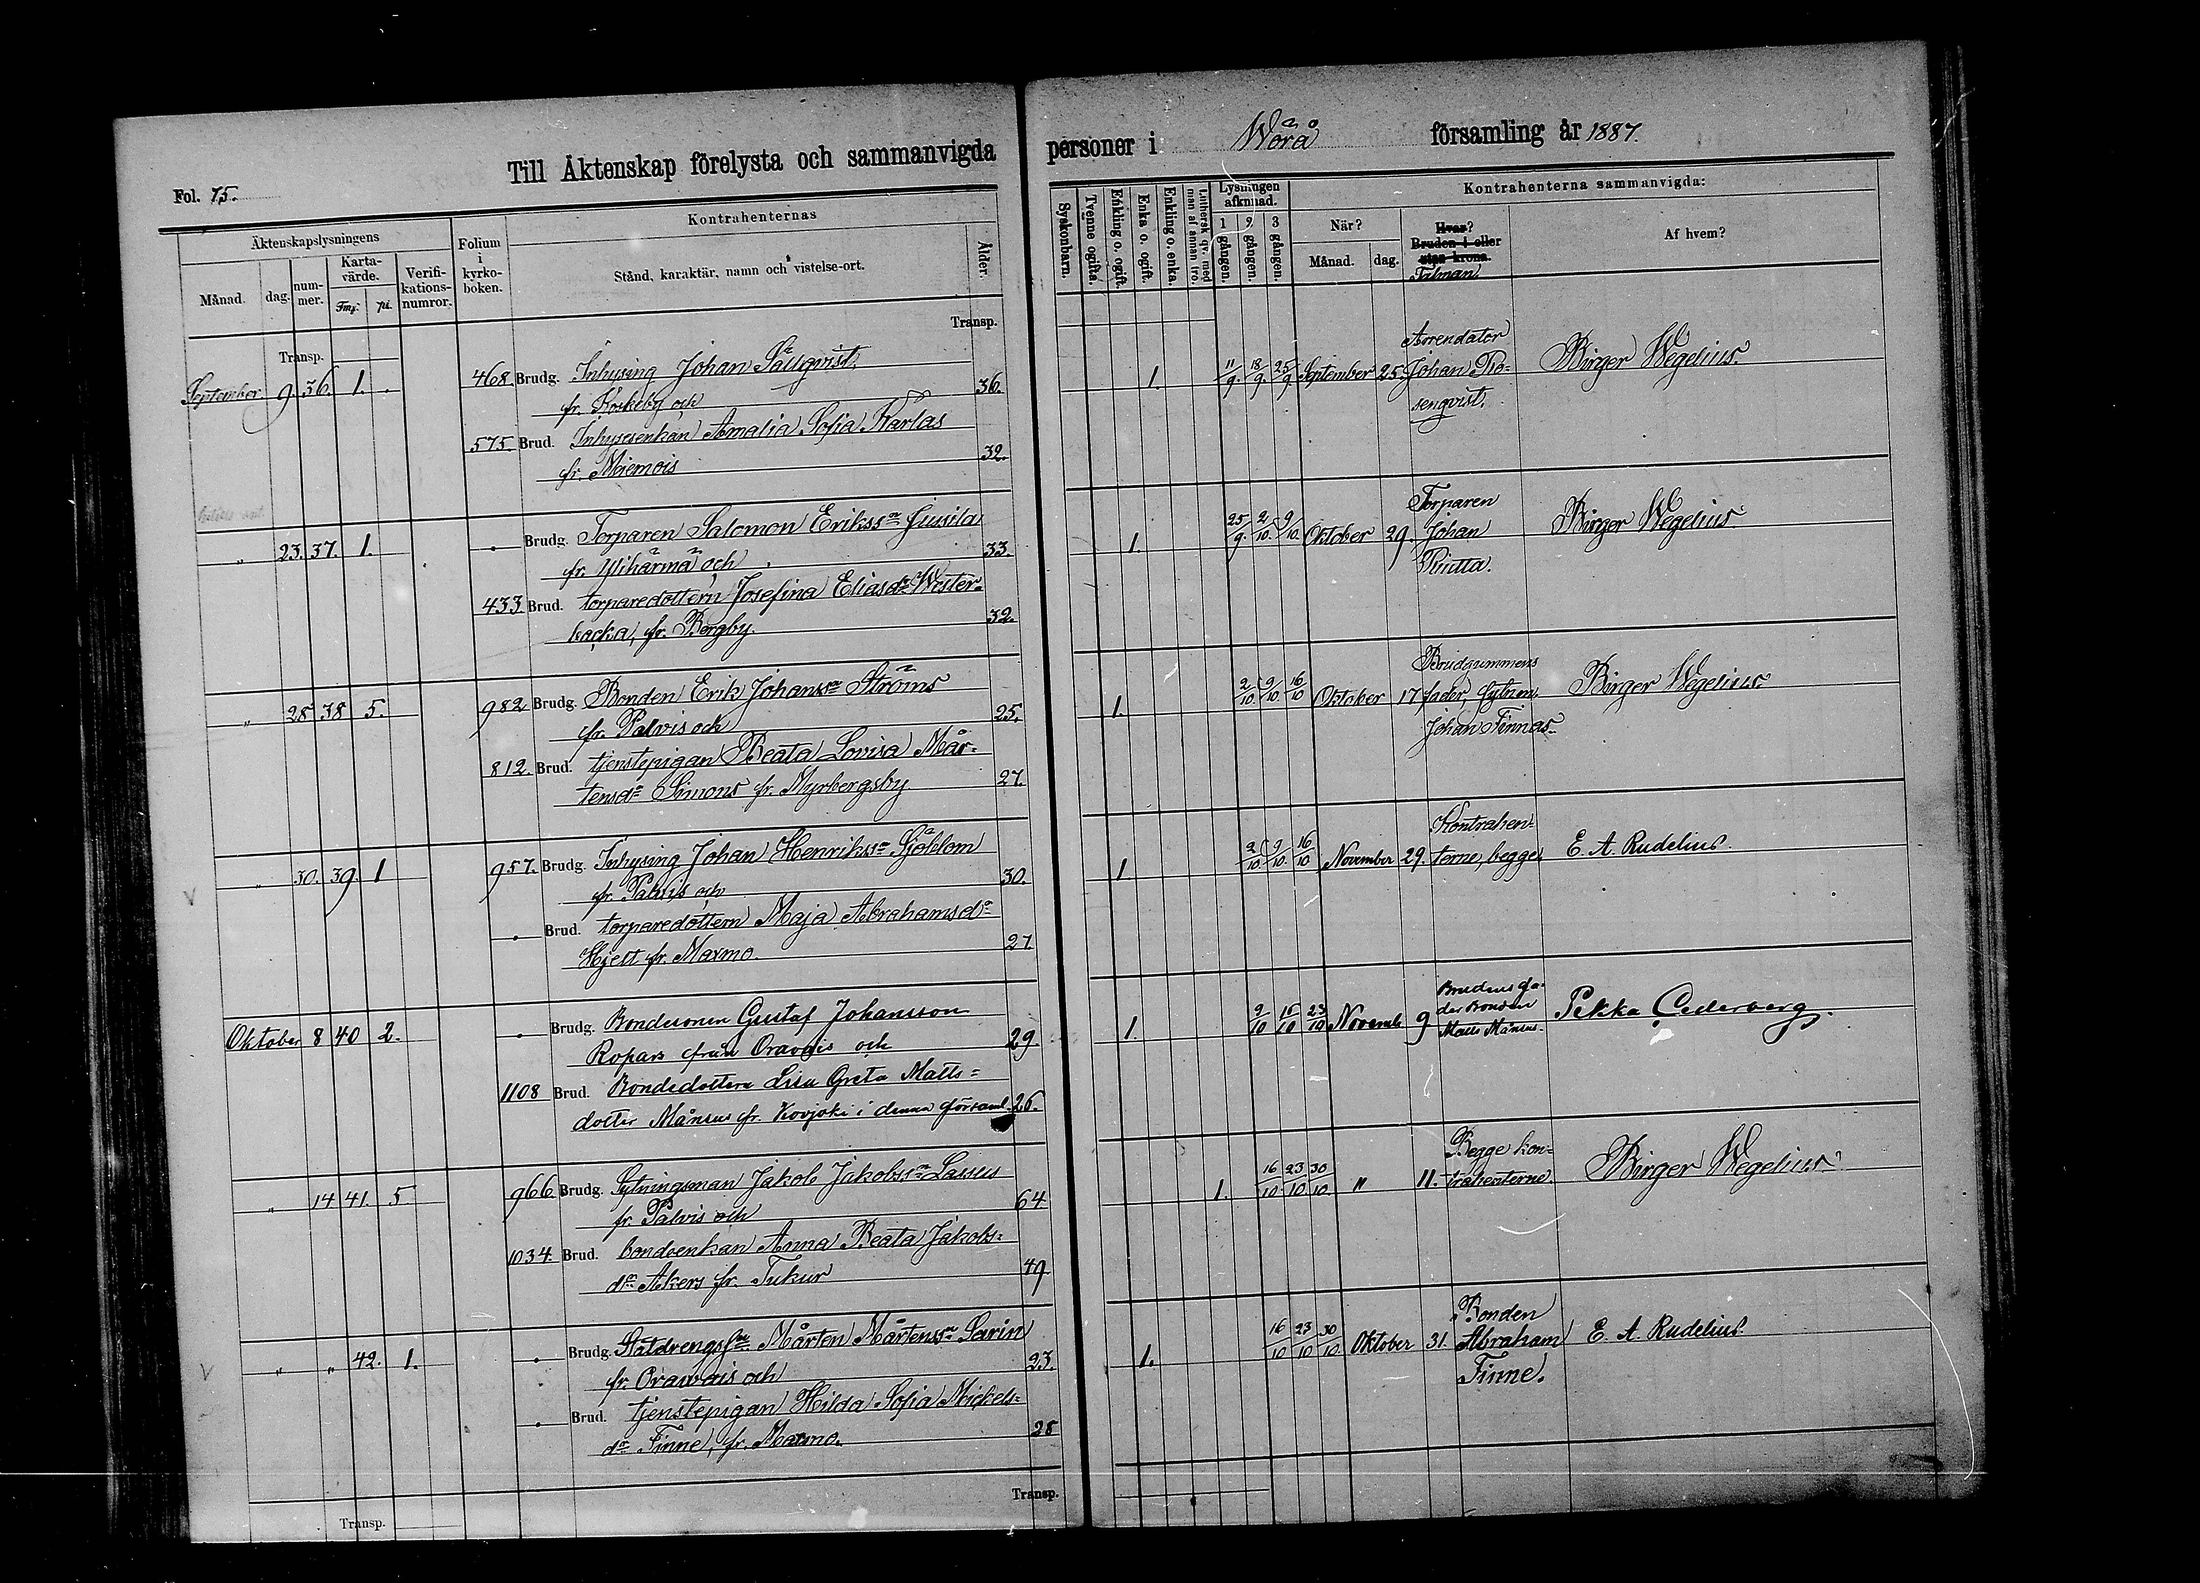 Till Äktenskap förelysta och sammanvigda
Fol. 75.
Äktenskapslysningens
Månad.
dag.
num-
mer.
Karta-
värde.
Fmg.
pi.
Verifi-
kations-
numror.
Folium
i
kyrko-
boken.
Kontrahenternas
Stånd, karaktär, namn och vistelse-ort.
Ålder.
Transp.
Transp.
September 9. 36. 1. 468 Brudg. Inhysing Johan Sällqvist
fr. Rökeby och 36.
575. Brud. Inhysesenkan Amalia Sofia Karlas
fr. Miemois 32.
" 23. 37. 1. Brudg. Torparen Salomon Erikssn Jussila
fr. Ylihärmä och 33.
433 Brud. torparedottern Josefina Eliasdr Wester-
backa, fr. Bergby. 32.
" 28 38 5. 982 Brudg. Bonden Erik Johanssn Ströms
fr. Palvis och 25.
812. Brud. tjenstepigan Beata Lovisa Mår-
tensdr Simons fr. Myrbergsby 27.
" 30. 39. 1 957. Brudg. Inhysing Johan Henrikssn Sjöblom
fr. Palvis och 30.
Brud. torparedottern Maja Abrahamsdr
Hjett fr. Maxmo. 27.
Oktober 8 40 2. Brudg. Bondesonen Gustaf Johansson
Ropars från Oravais och 29.
1108 Brud. Bondedottern Lisa Greta Matts=
dotter Månsus fr. Kovjoki i denna församl. 26.
" 14 41. 5. 966 Brudg. Sytningsman Jakob Jakobssn Lassus
fr. Palvis och 64
1034. Brud. bondeenkan Anna Beata Jakobs=
dr Akers fr. Tukur 49
" " 42. 1. Brudg. Statdrengsn Mårten Mårtenssn Sarin
fr. Oravais och 23.
Brud. tjenstepigan Hilda Sofia Mickels=
dr Finne, fr. Maxmo. 28
Transp.
Transp.
personer i Wörå församling år 1887.
Syskonbarn.
Tvenne ogifta.
Enkling o. ogift.
Enka o. ogift.
Enkling o. enka.
Luthersk qv. med
man af annan tro.
Lysningen
afkunnad.
1 gången.
2 gången.
3 gången.
Kontrahenterna sammanvigda:
När?
Månad.
dag.
Hvar?
Bruden i eller
utan krona.
Talman.
Af hvem?
1. 11/9. 18/9. 25/9 September 25. Arrendator
Johan Ro-
senqvist. Birger Wegelius.
1. 25/9. 2/10. 9/10. Oktober 29. Torparen
Johan
Birger Wegelius
1. 2/10. 9/10. 16/10 Oktober 17 Brudgummens
fader, sytnm
Johan Finnas. Birger Wegelius.
1. 2/10. 9/10. 16/10 November 29. Kontrahen-
terne, begge E. A. Rudelius.
1. 9/10 16/10 23/10 Novemb. 9 Brudens fa-
der Bonden
Matts Månsus. Pekka Cederberg.
1. 16/10 23/10 30/10. " 11. Begge kon-
trahenterne Birger Wegelius
1. 16/10 23/10 30/10 Oktober 31. Bonden
Abraham
Finne. E. A. Rudelius.